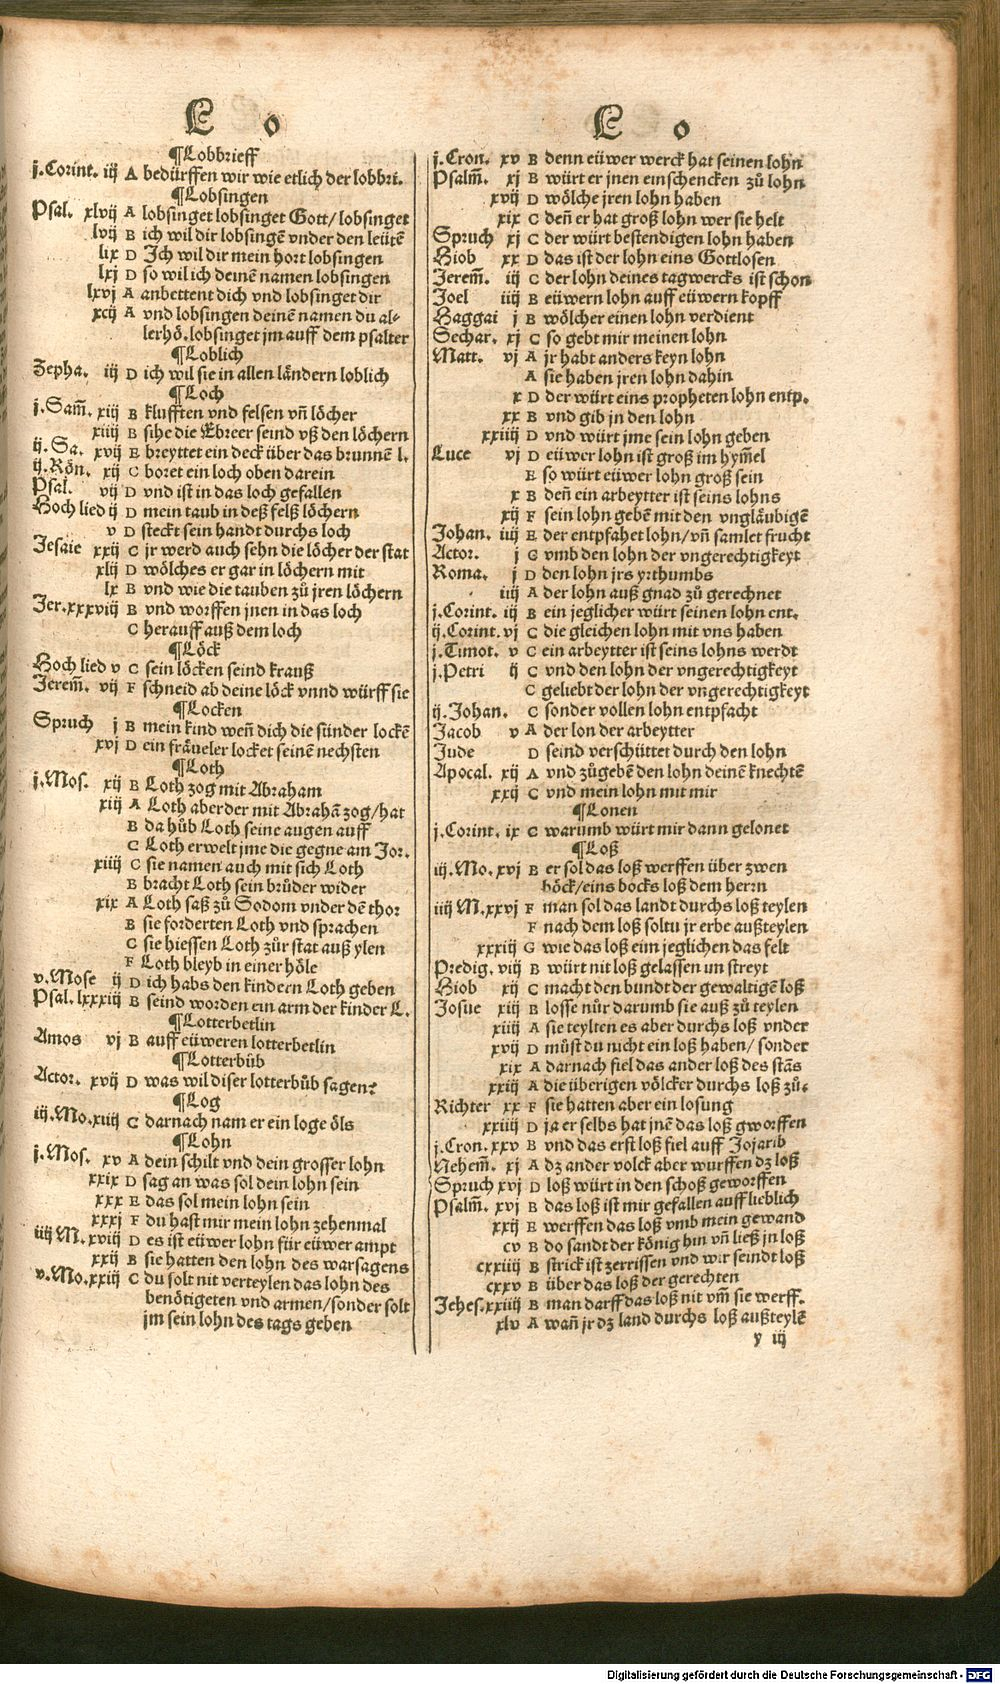 L o
¶Lobbrieff
j.Corint. iij A bedürffen wir wie etlich der lobbri.
¶Lobsingen
Psal. xlvij A lobsinget lobsinget Gott/ lobsinget
lvij B ich wil dir lobsingē vnder den leütē
lix D Ich wil dir mein hort lobsingen
lxj D so wil ich deinē namen lobsingen
lxvj A anbettent dich vnd lobsinget dir
xcij A vnd lobsingen deinē namen du al-
lerhö. lobsinget jm auff dem psalter
¶Loblich
Zepha. iij D ich wil sie in allen ländern loblich
¶Loch
j.Sam̄. xiij B klufften vnd felsen vn̄ löcher
xiiij B sihe die Ebreer seind vß den löchern
ij.Sa. xvij E breyttet ein deck über das brunnē l.
ij.Kön. xij C boret ein loch oben darein
Psal. vij D vnd ist in das loch gefallen
Hoch lied ij D mein taub in deß felß löchern
v D steckt sein handt durchs loch
Jesaie xxij C jr werd auch sehn die löcher der stat
xlij D wölches er gar in löchern mit
lx B vnd wie die tauben zů jren löchern
Jer.xxxviij B vnd worffen jnen in das loch
C herauff auß dem loch
¶Löck
Hoch lied v C sein löcken seind krauß
Jerem̄. vij F schneid ab deine löck vnnd würff sie
¶Locken
Spruch j B mein kind wen̄ dich die sünder lockē
xvj D ein fräueler locket seinē nechsten
¶Loth
j.Mos. xij B Loth zog mit Abraham
xiij A Loth aber der mit Abrahā zog/ hat
B da hůb Loth seine augen auff
C Loth erwelt jme die gegne am Jor.
xiiij C sie namen auch mit sich Loth
B bracht Loth sein brůder wider
xix A Loth saß zů Sodom vnder dē thor
B sie forderten Loth vnd sprachen
C sie hiessen Loth zůr stat auß ylen
F Loth bleyb in einer höle
v.Mose ij D ich habs den kindern Loth geben
Psal. lxxxiij B seind worden ein arm der kinder L.
¶Lotterbetlin
Amos vj B auff eüweren lotterbetlin
¶Lotterbůb
Actor. xvij D was wil diser lotterbůb sagen?
¶Log
iij.Mo.xiiij C darnach nam er ein loge öls
¶Lohn
j.Mos. xv A dein schilt vnd dein grosser lohn
xxix D sag an was sol dein lohn sein
xxx E das sol mein lohn sein
xxxj F du hast mir mein lohn zehenmal
iiij M.xviij D es ist eüwer lohn für eüwer ampt
xxij B sie hatten den lohn des warsagens
v.Mo.xxiij C du solt nit verteylen das lohn des
benötigeten vnd armen/ sonder solt
jm sein lohn des tags geben
L o
j.Cron. xv B denn eüwer werck hat seinen lohn
Psalm̄. xj B würt er jnen einschencken zů lohn
xvij D wölche jren lohn haben
xix C den̄ er hat groß lohn wer sie helt
Spruch xj C der würt bestendigen lohn haben
Hiob xx D das ist der lohn eins Gottlosen
Jerem̄. iij C der lohn deines tagwercks ist schon
Joel iiij B eüwern lohn auff eüwern kopff
Haggai j B wölcher einen lohn verdient
Sechar. xj C so gebt mir meinen lohn
Matt. vj A jr habt anders keyn lohn
A sie haben jren lohn dahin
x D der würt eins propheten lohn entp.
xx B vnd gib in den lohn
xxiiij D vnd würt jme sein lohn geben
Luce vj D eüwer lohn ist groß im hym̄el
E so würt eüwer lohn groß sein
x B den̄ ein arbeytter ist seins lohns
xij F sein lohn gebē mit den vngläubigē
Johan. iiij E der entpfahet lohn/ vn̄ samlet frucht
Actor. j G vmb den lohn der vngerechtigkeyt
Roma. j D den lohn jrs yrthumbs
iiij A der lohn auß gnad zů gerechnet
j.Corint. iij B ein jeglicher würt seinen lohn ent.
ij.Corint. vj C die gleichen lohn mit vns haben
j.Timot. v C ein arbeytter ist seins lohns werdt
j.Petri ij C vnd den lohn der vngerechtigkeyt
C geliebt der lohn der vngerechtigkeyt
ij.Johan. C sonder vollen lohn entpfacht
Jacob v A der lon der arbeytter
Jude D seind verschüttet durch den lohn
Apocal. xij A vnd zůgebē den lohn deinē knechtē
xxij C vnd mein lohn mit mir
¶Lonen
j.Corint. ix C warumb würt mir dann gelonet
¶Loß
iij.Mo.xvj B er sol das loß werffen über zwen
böck/ eins bocks loß dem herrn
iiij M.xxvj F man sol das landt durchs loß teylen
F nach dem loß soltu jr erbe außteylen
xxxiij G wie das loß eim jeglichen das felt
Predig. viij B würt nit loß gelassen im streyt
Hiob xij C macht den bundt der gewaltigē loß
Josue xiij B losse nůr darumb sie auß zů teylen
xiiij A sie teylten es aber durchs loß vnder
xvij D můst du nicht ein loß haben/ sonder
xix A darnach fiel das ander loß des stās
xxiij A die überigen völcker durchs loß zů-
Richter xx F sie hatten aber ein losung
xxxiiij D ja er selbs hat jnē das loß gworffen
j.Cron. xxv B vnd das erst loß fiel auff Jojarib
Nehem̄. xj A dz ander volck aber wurffen dz loß
Spruch xvj D loß würt in den schoß geworffen
Psalm̄. xvj B das loß ist mir gefallen auff lieblich
xxij E werffen das loß vmb mein gewand
cv B do sandt der könig hin vn̄ ließ jn loß
cxxiiij B strick ist zerrissen vnd wir seindt loß
cxxv B über das loß der gerechten
Jehes.xxiiij B man darff das loß nit vm̄ sie werff.
xlv A wan̄ jr dz land durchs loß außteylē
y iij
Digitalisierung gefördert durch die Deutsche Forschungsgemeinschaft - DFG